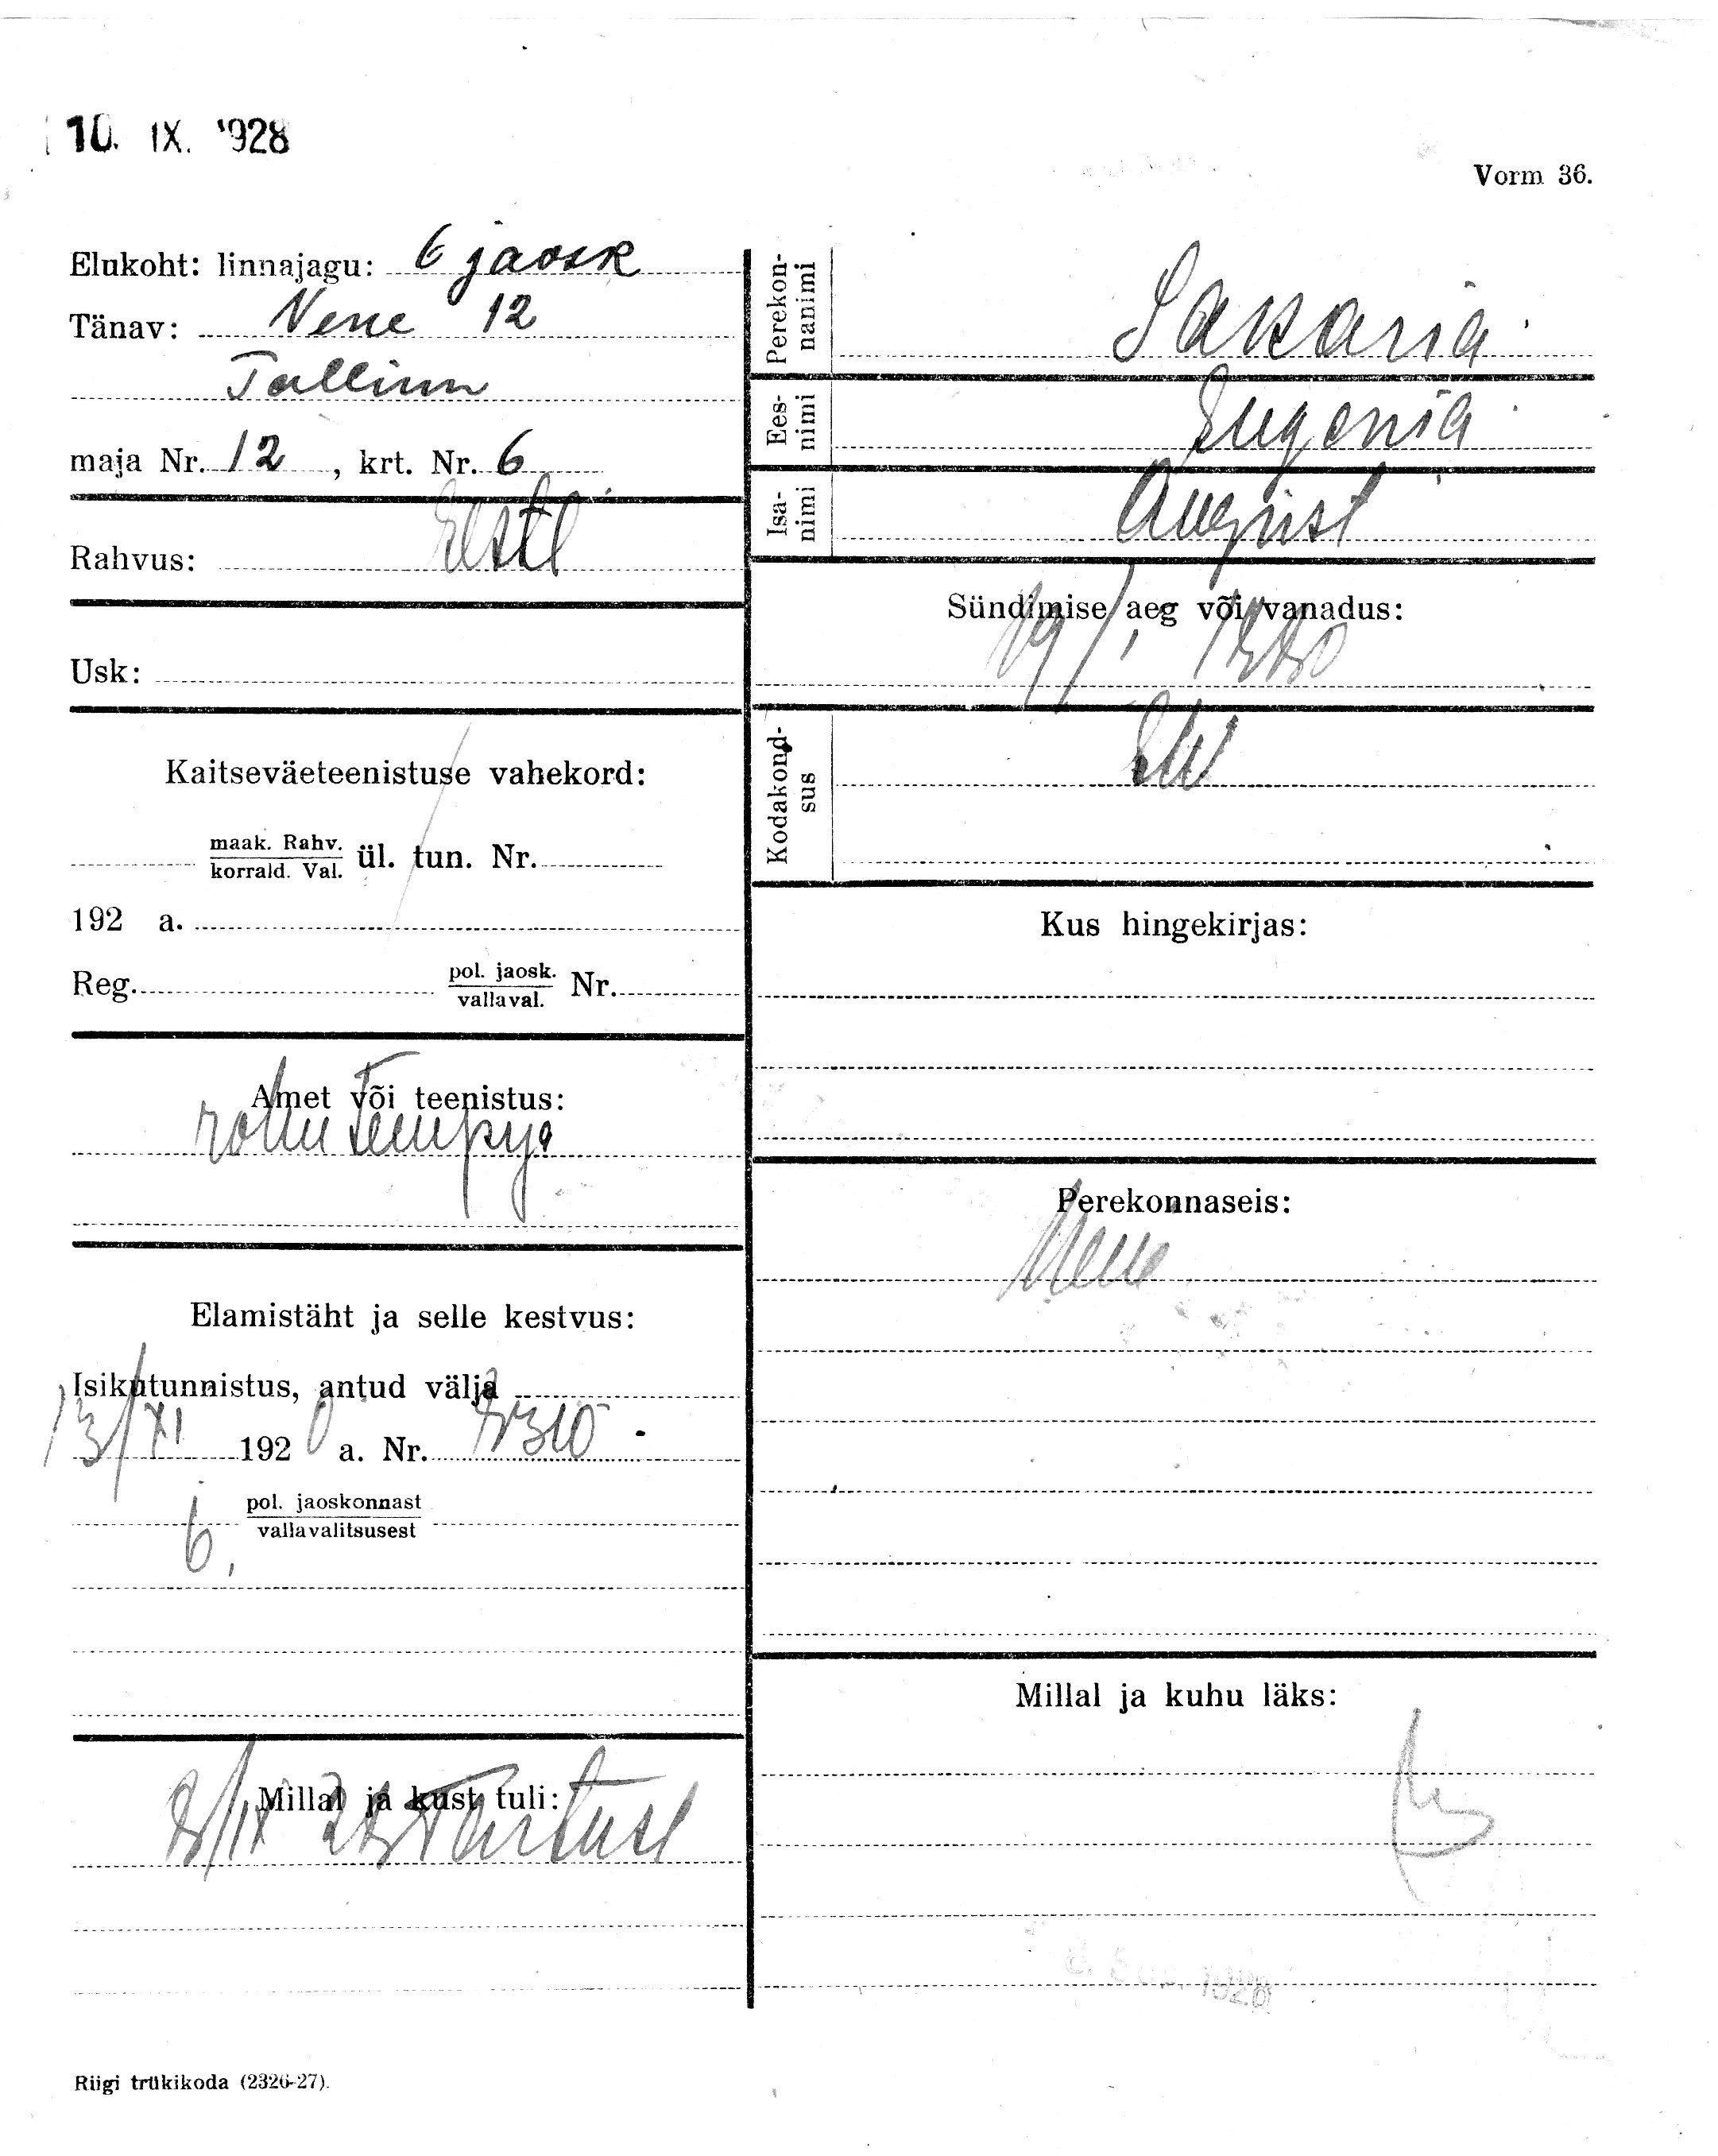 10. IX. 1928
Vorm 36.
Elukoht: linnajagu: 6 jaosk
Tänav: Vene 12
Tallinn
maja Nr. 12, krt. Nr. 6
Rahvus: Eesti
Usk:
Kaitseväeteenistuse vahekord:
maak. Rahv.
korrald. Val. ül. tun. Nr.
192 a.
Reg. pol. jaosk. Nr.
vallaval.
Amet või teenistus:
Elamistäht ja selle kestvus:
Isikutunnistus, antud välja
13/XI 1920 a. Nr.
6. pol. jaoskonnast
vallavalitsusest
Millal ja kust tuli:
8/IX 28 Tartust
Riigi trükikoda (2326-27).
Perekon-
nanimi
Sakaria
Ees-
nimi
Eugenia
Isa-
nimi
August
Sündimise aeg või vanadus:
19/I
Kodakond-
sus
EW
Kus hingekirjas:
Perekonnaseis:
Millal ja kuhu läks: